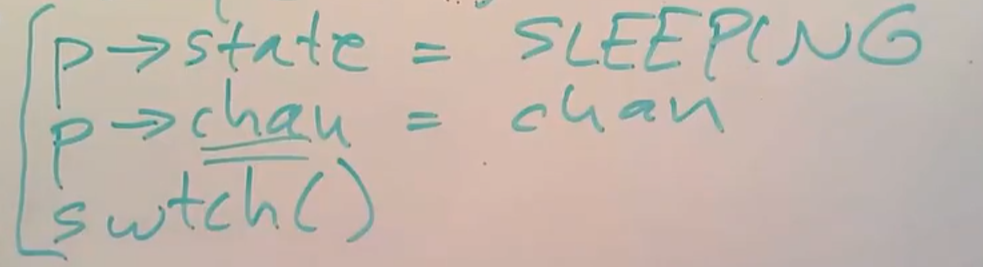 p->state = SLEEPING
p->chan = chan
swtch()